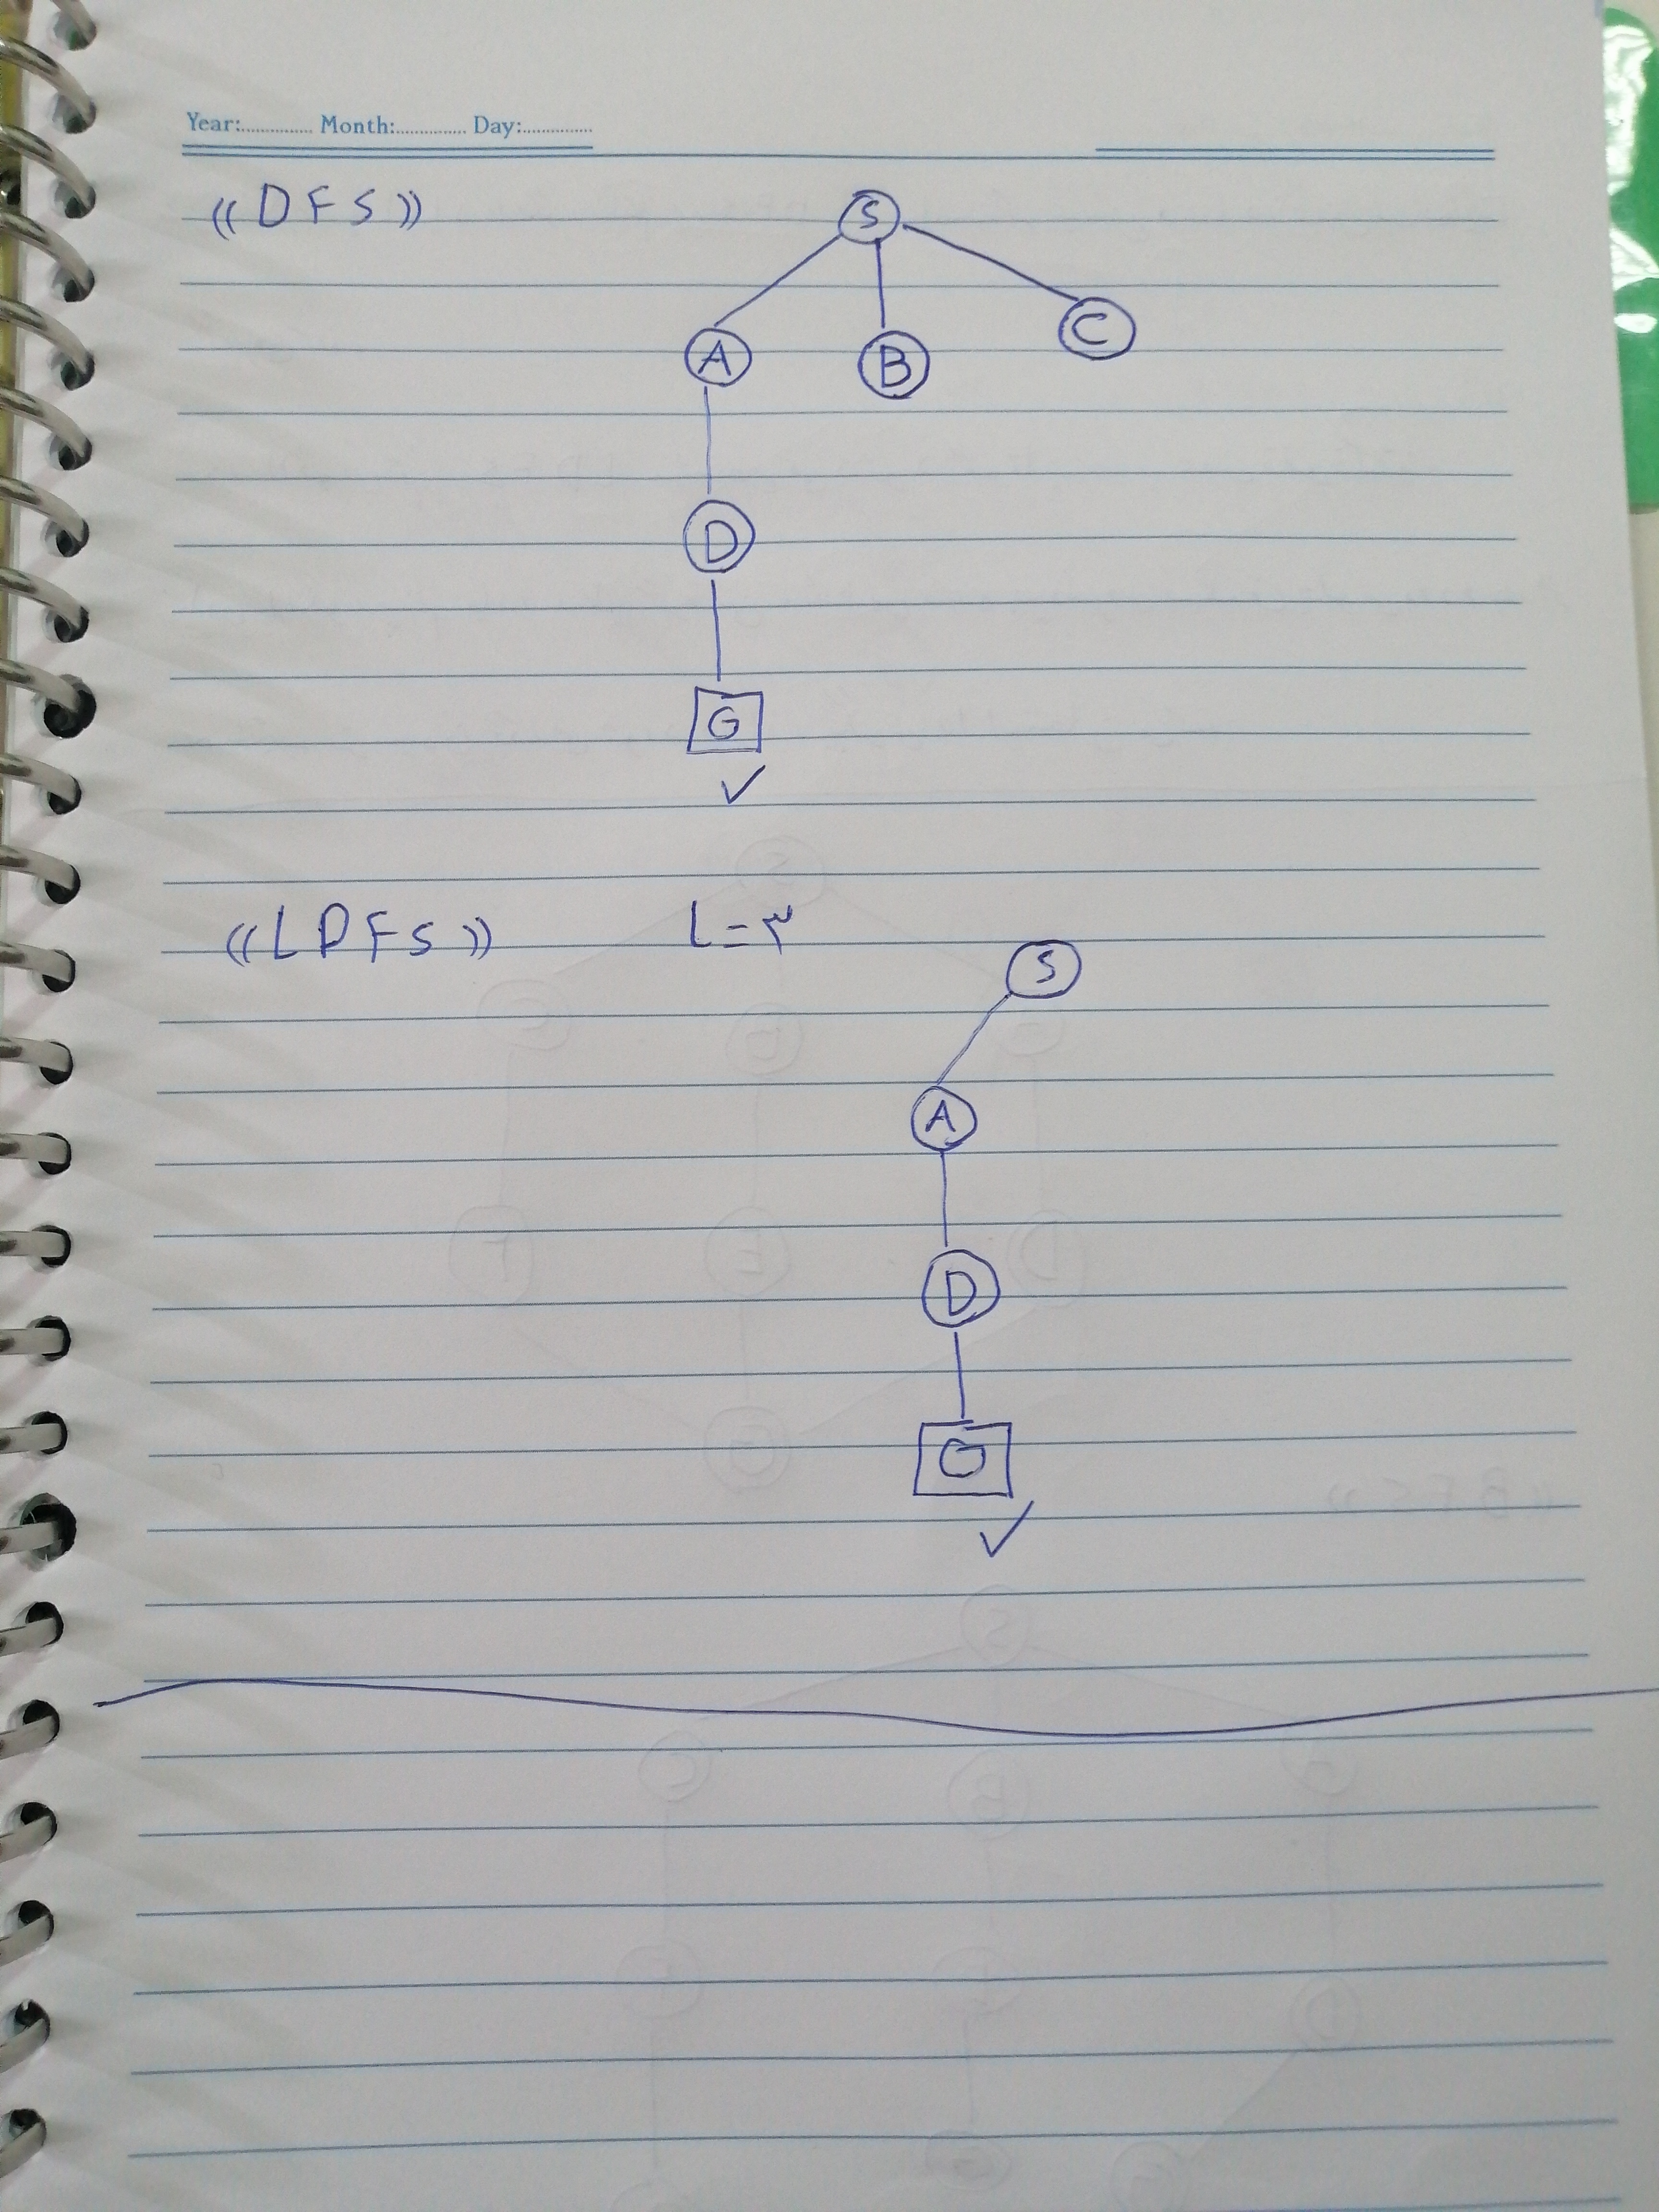 Year:............... Month:............... Day:...............
«DFS»
S
A B C
D
G
«LDFS» L=۳
S
A
D
G